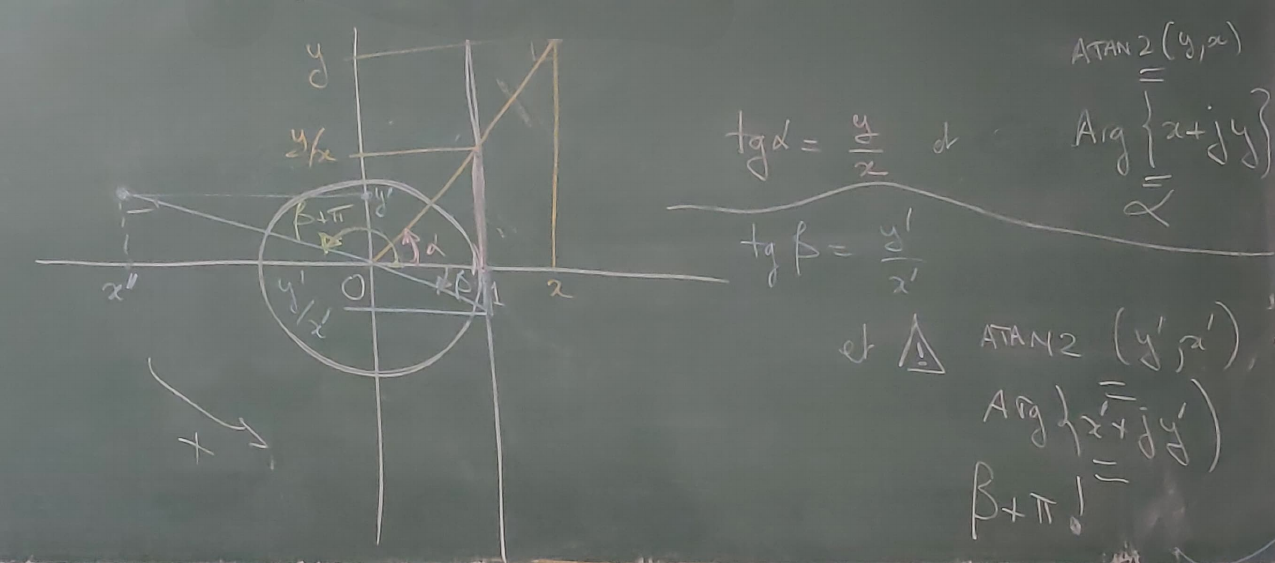 y
y/x
y'
β+π
α
x"
O
β
1
x
y'/x'
+
tg α = y/x et
ATAN2(y,x)
=
Arg{x+jy}
=
α
tg β = y'/x'
et ⚠ ATAN2 (y',x')
=
Arg{x'+jy'}
=
β+π!